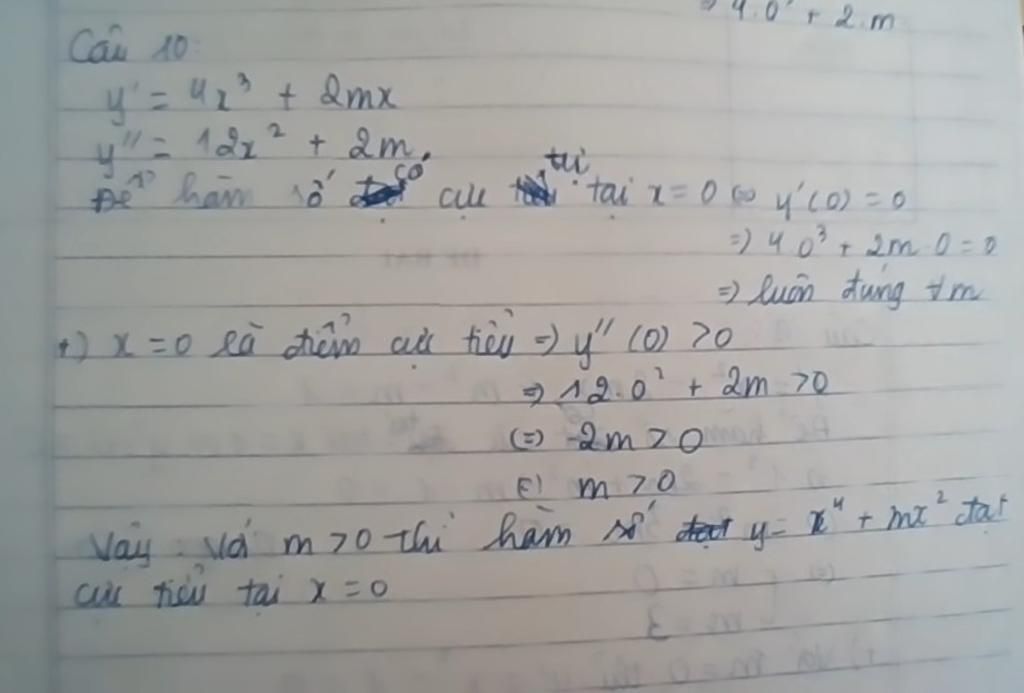 => 4.0² + 2.m
Câu 10:
y' = 4x³ + 2mx
y'' = 12x² + 2m.
Để hàm số có cực trị tại x=0 <=> y'(0) = 0
=> 4.0³ + 2m.0 = 0
=> luôn đúng ∀m
+) x = 0 là điểm cực tiểu => y''(0) > 0
=> 12.0² + 2m > 0
(=) 2m > 0
(=) m > 0
Vậy với m > 0 thì hàm số y = x⁴ + mx² đạt
cực tiểu tại x = 0